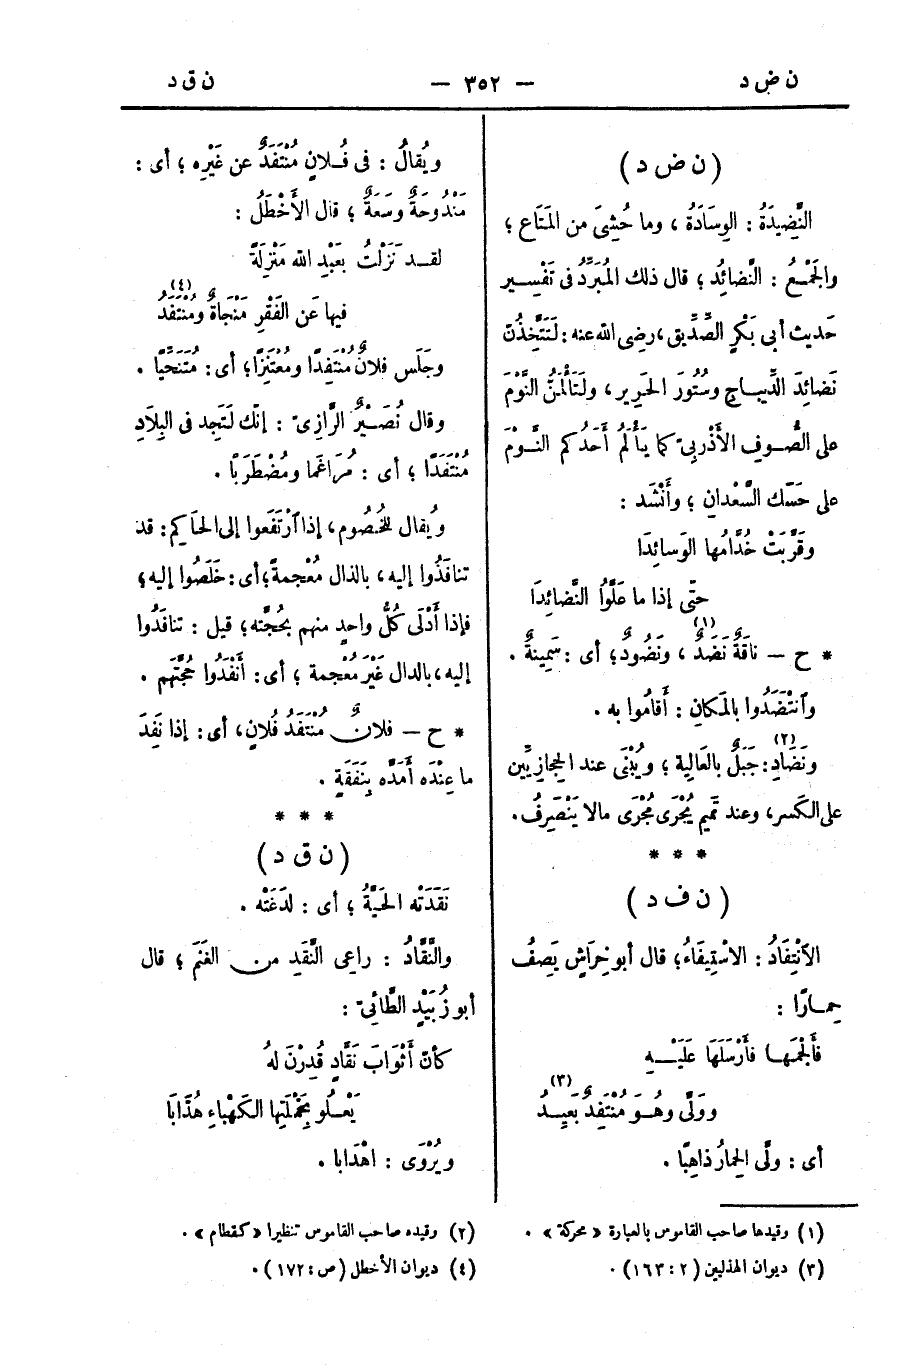 ن ض د — ٣٥٢ — ن ق د
( ن ض د )
النَّضِيدَةُ : الوِسَادَةُ ، وما حُشِىَ من المَتَاع ؛
والجَمْعُ : النَّضائِد ؛ قال ذلك المُبَرِّدُ فى تَفْسِير
حَديث أبى بَكْرٍ الصِّدِّيق ، رضى الله عنه : لَتَتَّخِذُنَّ
نَضائِدَ الدِّيباجِ وسُتُورَ الحَرِير ، ولَتَأْلَمُنَّ النَّوْمَ
على الصُّوفِ الأَذْرَبِىّ كما يَأْلَمُ أَحَدُكم النَّوْمَ
على حَسَك السَّعْدانِ ؛ وأَنْشَد :
وقَرَّبَتْ خُدَّامُها الوَسائِدَا
حتّى إذا ما عَلَّوُا النَّضائِدَا
* ح — ناقَةٌ نَضَدٌ (١) ، ونَضُودٌ ؛ أى : سَمِينةٌ .
وٱنْتَضَدُوا بالمَكانِ : أَقامُوا به .
ونَضَادِ (٢) : جَبَلٌ بالعَالِيةِ ؛ ويُبْنَى عند الحِجازِيِّين
على الكَسر ، وعند تَمِيم يُجْرَى مُجْرَى مالا يَنْصَرِفُ .
* * *
( ن ف د )
الٱنْتِفَادُ : الاسْتِيفَاءُ ؛ قال أبو خِرَاشٍ يَصِفُ
حِمـارًا :
فأَلْجَمَها فأَرْسَلَهَا عَلَيْـهِ
ووَلَّى وهُـوَ مُنْتَفِدٌ بَعِيدُ (٣)
أى : ولَّى الحِمارُ ذاهِبًا .
ويُقالُ : فى فُلانٍ مُنْتَفَدٌ عن غَيْرِه ؛ أى :
مَنْدُوحَةٌ وسَعَةٌ ؛ قال الأَخْطَلُ :
لقـد نَزَلْتُ بعَبْدِ الله مَنْزِلَةً
فيها عَن الفَقْرِ مَنْجَاةٌ ومُنْتَفَدُ (٤)
وجَلَس فلانٌ مُنْتَفِدًا ومُعْتَنِزًا ؛ أى : مُتَنَحِّيًا .
وقال نُصَيْرٌ الرَّازِىّ : إنّك لَتَجِد فى البِلَادِ
مُنْتَفَدًا ؛ أى : مُرَاغَمًا ومُضْطَرَبًا .
ويُقال للخُصُوم ، إذا ٱرْتَفَعوا إلى الحَاكِم : قد
تنافَذُوا إليه ، بالذال مُعْجمةً ؛ أى : خَلَصُوا إليه ؛
فإذا أَدْلَى كُلُّ واحدٍ منهم بحُجَّته ؛ قيل : تنافَدُوا
إليه ، بالدال غَيْرَ مُعْجمة ؛ أى : أَنْفَدُوا حُجَّتَهم .
* ح — فلانٌ مُنْتَفَدُ فُلانٍ ، أى : إذا نَفِدَ
ما عِنْدَه أَمَدَّه بِنَفَقَةٍ .
* * *
( ن ق د )
نَقَدَتْه الحَيَّةُ ؛ أى : لدَغَتْه .
والنَّقَّادُ : راعِى النَّقَدِ من الغَنَم ؛ قال
أبو زُبَيْدٍ الطَّائِىّ :
كأنّ أَثْوَابَ نَقَّادٍ قُدِرْنَ لهُ
يَعْـلُو بِخَمْلَتِها الكَهْباءِ هُدَّابَا
ويُرْوَى : اهْدَابا .
(١) وقيدها صاحب القاموس بالعبارة « محركة » .
(٢) وقيده صاحب القاموس تنظيرا « كقطام » .
(٣) ديوان الهذليين (٢ : ١٦٣) .
(٤) ديوان الأخطل (ص : ١٧٢) .